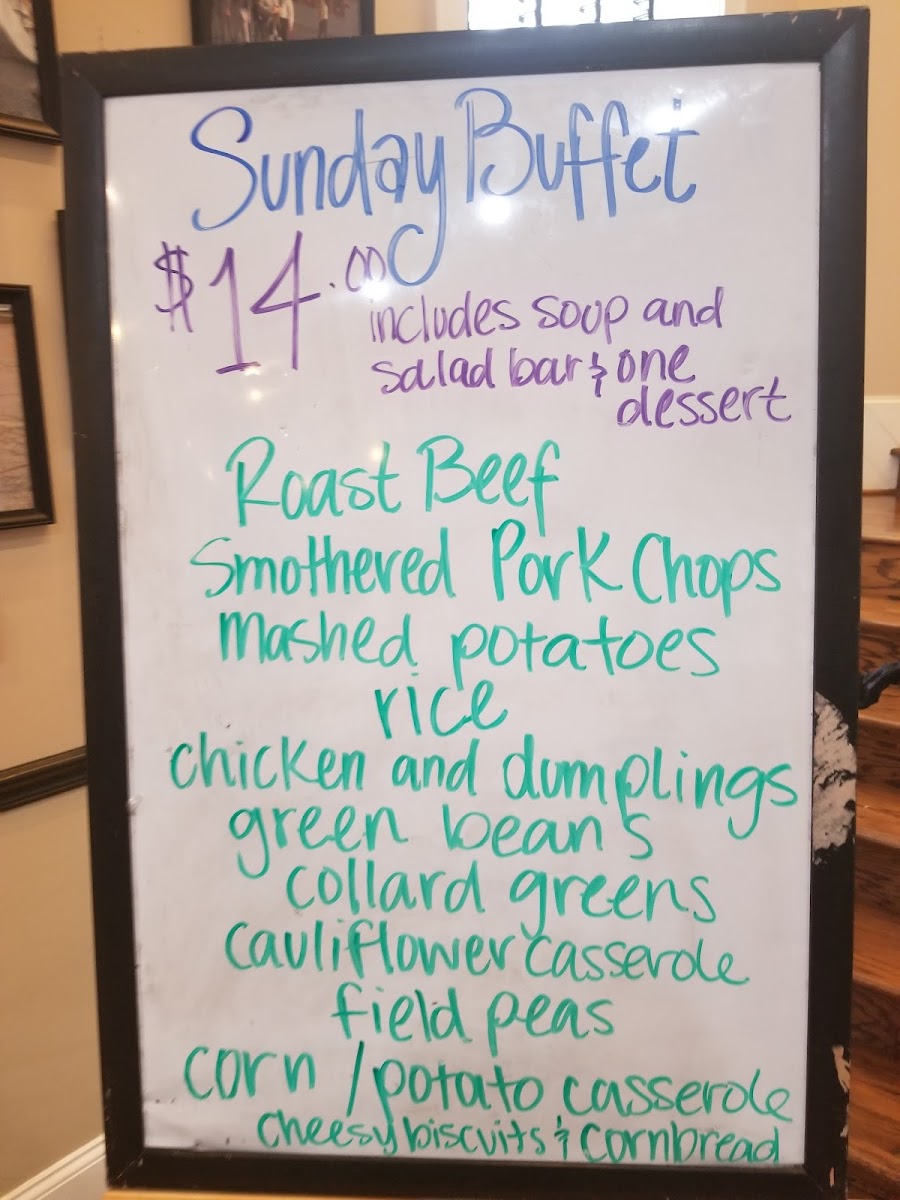 Sunday Buffet
$14.00
includes soup and
salad bar & one
dessert
Roast Beef
Smothered Pork Chops
mashed potatoes
rice
chicken and dumplings
green beans
collard greens
cauliflower casserole
field peas
corn / potato casserole
cheesy biscuits & cornbread